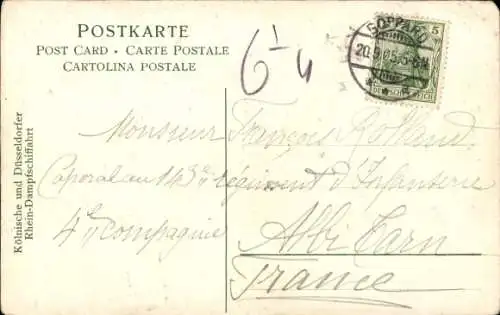 POSTKARTE
POST CARD • CARTE POSTALE
CARTOLINA POSTALE
Kölnische und Düsseldorfer
Rhein-Dampfschiffahrt
6 1/4
BOPPARD
5
DEUTSCHES REICH
Monsieur François Rolland
Caporal au 143e régiment d'Infanterie
4e Compagnie
Albi Tarn
France